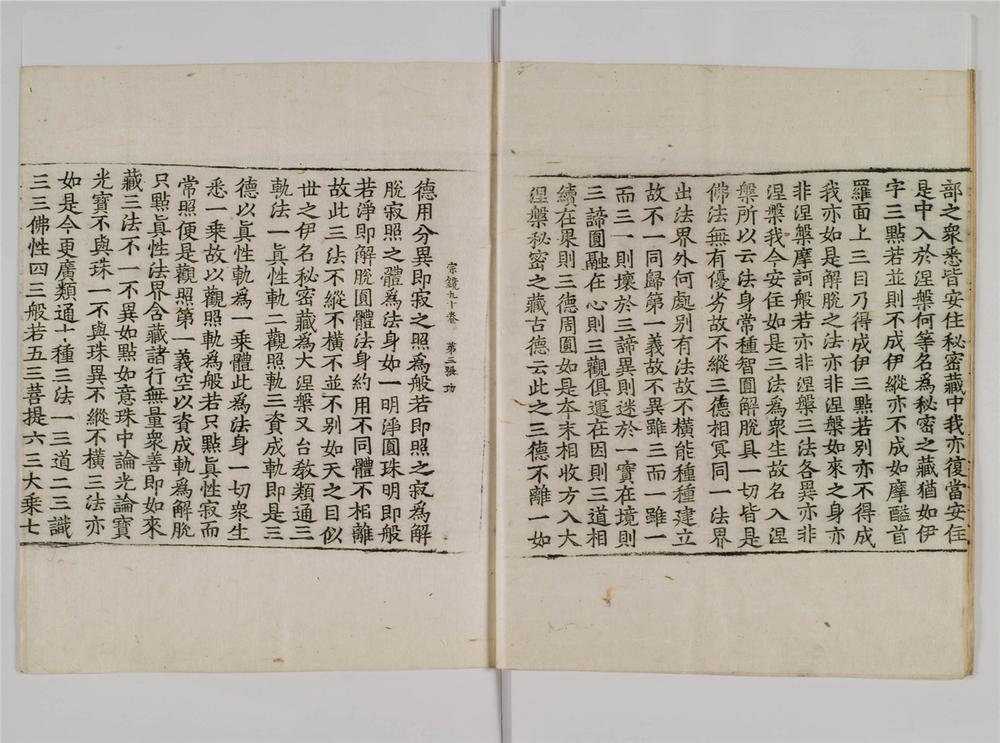 部之衆悉皆安住秘密藏中我亦復當安住
是中入於涅槃何等名爲秘密之藏猶如伊
字三點若並則不成伊縱亦不成如摩醯首
羅面上三目乃得成伊三點若別亦不得成
我亦如是解脫之法亦非涅槃如來之身亦
非涅槃摩訶般若亦非涅槃三法各異亦非
涅槃我今安住如是三法爲衆生故名入涅
槃所以云法身常種智圓解脫具一切皆是
佛法無有優劣故不縱三德相冥同一法界
出法界外何處別有法故不橫能種種建立
故不一同歸第一義故不異雖三而一雖一
而三一則壞於三諦異則迷於一實在境則
三諦圓融在心則三觀俱運在因則三道相
續在果則三德周圓如是夲末相收方入大
涅槃秘密之藏古德云此之三德不離一如
宗鏡九十卷 第三張 功
德用分異即寂之照爲般若即照之寂爲解
脫寂照之體爲法身如一明淨圓珠明即般
若淨即解脫圓體法身約用不同體不相離
故此三法不縱不橫不並不別如天之目似
世之伊名秘密藏爲大涅槃又台敎類通三
軌法一眞性軌二觀照軌三資成軌即是三
德以眞性軌爲一乘體此爲法身一切衆生
悉一乘故以觀照軌爲般若只點眞性寂而
常照便是觀照第一義空以資成軌爲解脫
只點眞性法界含藏諸行無量衆善即如來
藏三法不一不異如點如意珠中論光論寶
光寶不與珠一不與珠異不縱不橫三法亦
如是今更廣類通十種三法一三道二三識
三三佛性四三般若五三菩提六三大乘七